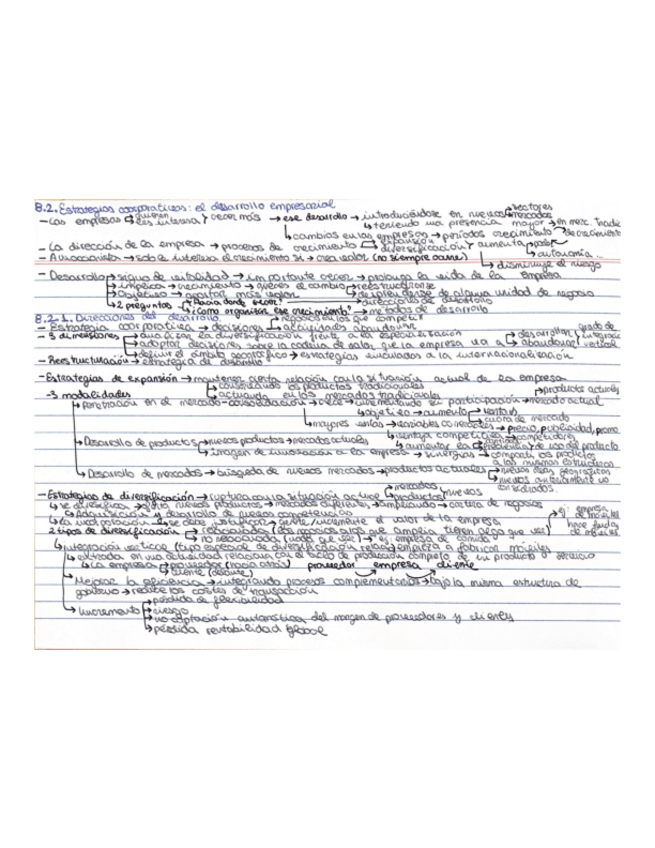 8.2. Estrategias corporativas: el desarrollo empresarial
- Las empresas quieren les interesa } crecer más → ese desarrollo → introduciéndose en nuevos → sectores mercados
↳ teniendo una presencia mayor → en merc. Trade
↳ cambios en las empresas → periodos crecimiento de crecimiento
- La dirección de la empresa → procesos de crecimiento expansión diversificación } aumenta poder
autonomía...
- Accionista → solo le interesa el crecimiento si → crea valor (no siempre ocurre)
↳ disminuye el riesgo
- Desarrollo → signo de vitalidad → importante crecer → prolonga la vida de la empresa
implica → crecimiento → quieres el cambio reestructurarse
objetivo → aportar más valor desprenderse de alguna unidad de negocio
2 preguntas "¿Hacia dónde crecer?" → direcciones de desarrollo
"¿Cómo organizar ese crecimiento?" → métodos de desarrollo
8.2.1. Direcciones del desarrollo
- Estrategia corporativa → decisiones negocios en los que competir
actividades abandonar
- 3 dimensiones analizar la diversificación frente a la especialización
adoptar decisiones sobre la cadena de valor que la empresa va a desarrollar abandonar } grado de integración vertical
definir el ámbito geográfico → estrategias vinculadas a la internacionalización
- Reestructuración → estrategia de desarrollo
- Estrategias de expansión → mantienen cierta relación con la situación actual de la empresa
considerando los productos tradicionales
actuando en los mercados tradicionales
- 3 modalidades
Penetración en el mercado - consolidación → crece → incrementando su participación → mercado actual
productos actuales
↳ objetivo → aumentar ventas
cuota de mercado
mayores ventas → variables comerciales → precio, publicidad, promo
ventaja competitiva competidores
Desarrollo de productos → nuevos productos → mercados actuales
↳ aumentar la frecuencia de uso del producto
imagen de innovación a la empresa → sinergias → compartir los productos
a las mismas estructuras
Desarrollo de mercados → búsqueda de nuevos mercados → productos actuales → nuevas áreas geográficas
nuevos anteriormente no considerados
- Estrategias de diversificación → ruptura con la situación actual mercados productos } nuevos
↳ se diversifica → ofrece nuevos productos → mercados diferentes → ampliando → cartera de negocios
↳ Adquisición y desarrollo de nuevas competencias
↳ La incorporación → se debe justificar → genere/incremente el valor de la empresa
2 tipos de diversificación relacionada (los negocios a los que amplía tienen algo que ver)
ej: empresa de móviles hace fundas de móviles
no relacionada (nada que ver) → ej: empresa de comida empieza a fabricar móviles
↳ integración vertical (tipo especial de diversificación relac.)
↳ entrada en una actividad relacion. con el ciclo de producción completo de un producto o servicio
↳ La empresa proveedor (hacia atrás) proveedor empresa cliente
cliente (delante)
↳ Mejorar la eficiencia → integrando procesos complementarios → bajo la misma estructura de
gobierno → reduce los costes de transacción
↳ Incremento pérdida de flexibilidad
riesgo
no captación automática del margen de proveedores y clientes
pérdida rentabilidad global